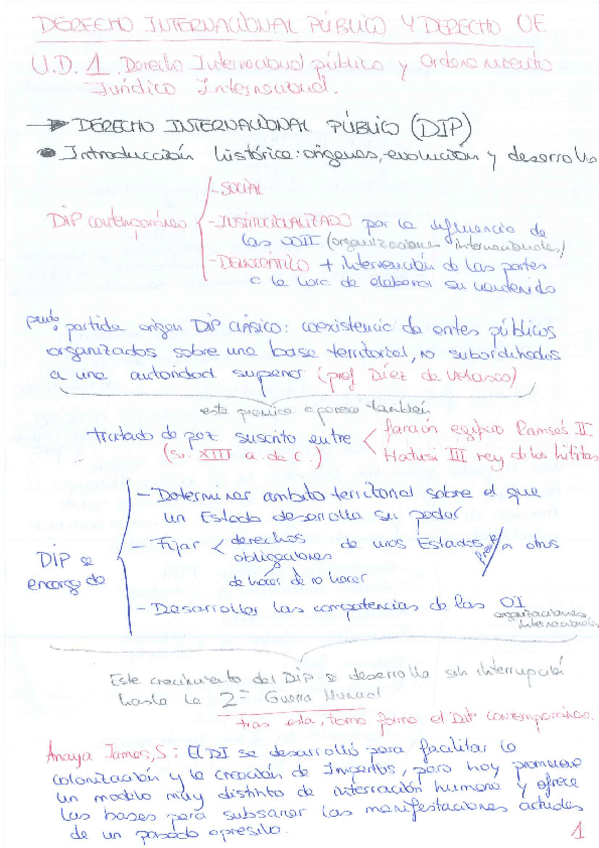 DERECHO INTERNACIONAL PÚBLICO Y DERECHO UE
U.D. 1. Derecho Internacional público y ordenamiento
Jurídico Internacional.
→ DERECHO INTERNACIONAL PÚBLICO (DIP)
• Introducción histórica: orígenes, evolución y desarrollo
DIP contemporáneo
- SOCIAL
- INSTITUCIONALIZADO por la influencia de
las OOII (organizaciones internacionales)
- DEMOCRÁTICO + intervención de las partes
a la hora de elaborar su contenido
punto partida origen DIP clásico: coexistencia de entes públicos
organizados sobre una base territorial, no subordinados
a una autoridad superior (prof Díez de Velasco)
esta premisa aparece también
tratado de paz suscrito entre
(S. XIII a. de C.)
faraón egipcio Ramsés II
Hatusi III rey de los hititas
DIP se
encarga de
- Determinar ámbito territorial sobre el que
un Estado desarrolla su poder
- Fijar < derechos
obligaciones
de hacer de no hacer
de unos Estados frente a otros
- Desarrollar las competencias de las OI
organizaciones
internacionales
Este crecimiento del DIP se desarrolla sin interrupción
hasta la 2ª Guerra Mundial
tras esta, toma forma el DIP contemporáneo.
Anaya James, S: El DI se desarrolló para facilitar la
colonización y la creación de Imperios, pero hoy promueve
un modelo muy distinto de interacción humana y ofrece
las bases para subsanar las manifestaciones actuales
de un pasado opresivo.
1